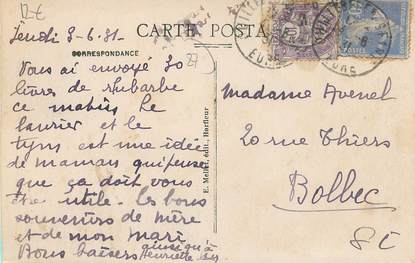 12 €
CARTE POSTALE
Jeudi 3-6-31
CORRESPONDANCE
27
Vous ai envoyé 30
livres de rhubarbe
ce matin, le
laurier et le
tym est une idée
de maman qui pense
que ça doit vous
être utile. Les bons
souvenirs de mère
et de mon mari
Bons baisers ainsi qu'à
Henriette
E. Mellet, édit., Harfleur
EURE
Madame Avenel
20 rue Thiers
Bolbec
8 €